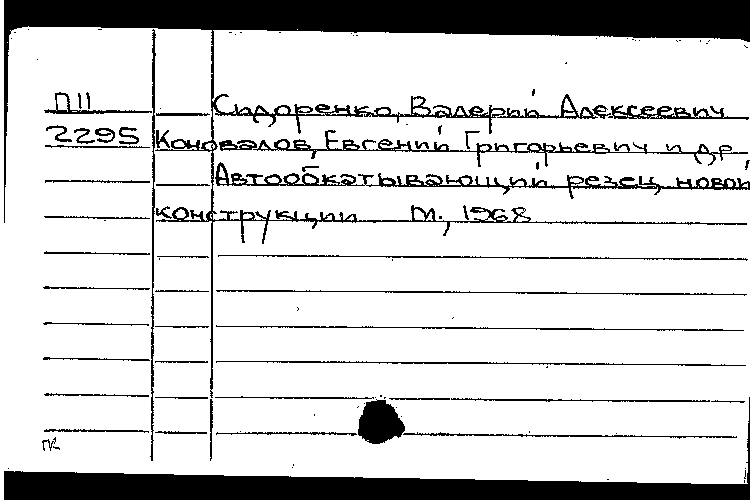 П11 Сидоренко, Валерий Алексеевич
2295 Коновалов, Евгений Григорьевич и др.
Автообкатывающий резец новой
конструкции М., 1968
ПК